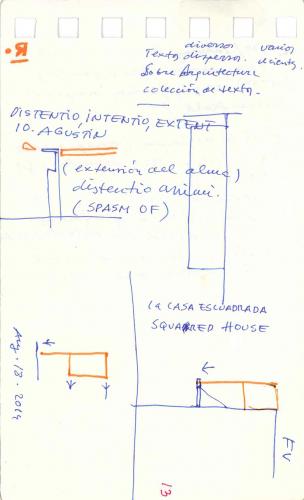 diversos varios
Textos dispersos. 
Sobre Arquitectura
colección de textos.
R.
DISTENTIO, INTENTIO, EXTENT
10. AGUSTÍN
(extensión del alma)
distentio animi.
(SPASM OF)
la CASA ESCUADRADA
SQUARED HOUSE
Aug. 13. 2014
FV
13